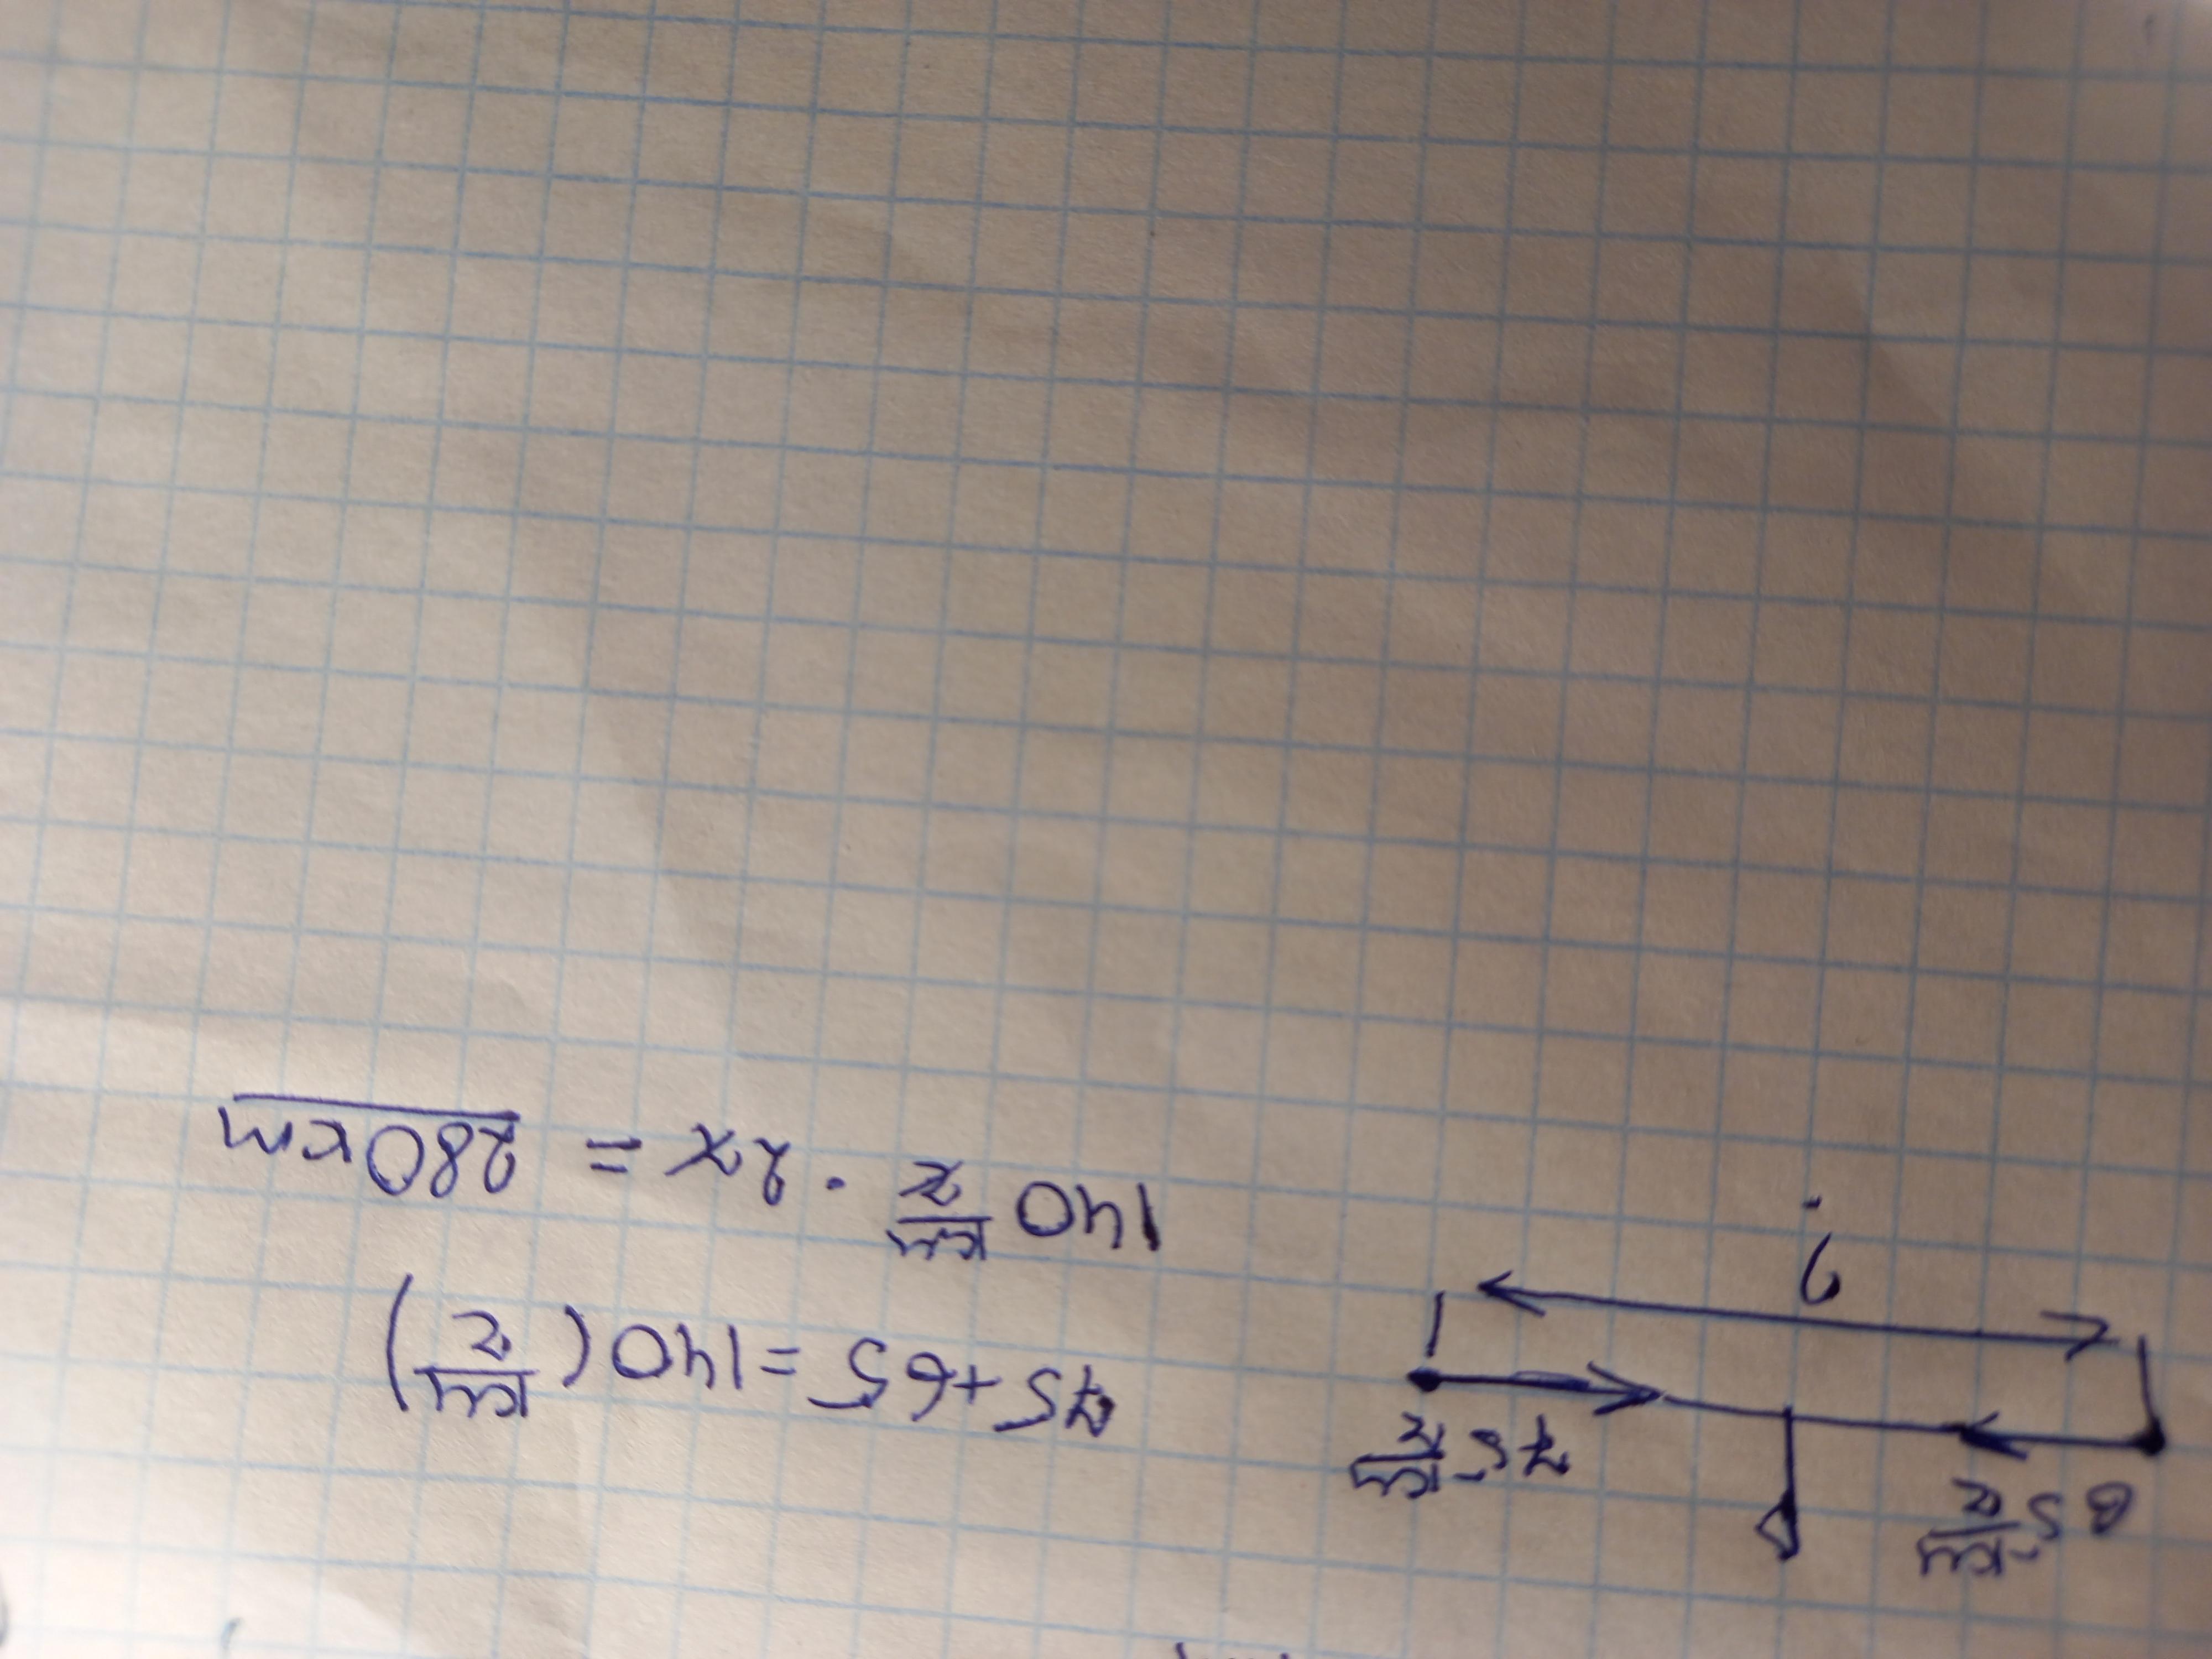 65 км/ч
75 км/ч
?
75+65=140(км/ч)
140 км/ч · 2ч = 280км